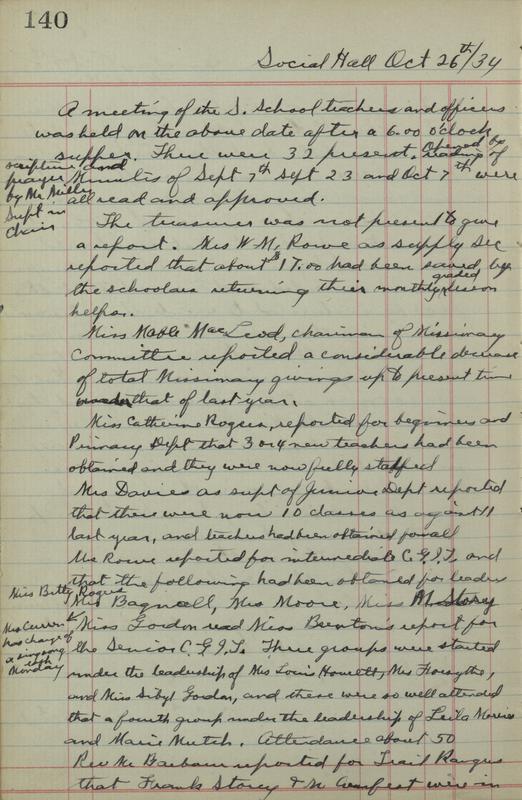 140
Social Hall Oct 26th/34
A meeting of the S. School teachers and officers
was held on the above date after a 6.00 o'clock
supper. There were 32 present. Opened by
scripture and prayer by Mr Miller Supt in Chair
reading of Minutes of Sept 7th Sept 23 and Oct 7th were
all read and approved.
The treasurer was not present to give
a report. Mrs W. M. Rowe as supply Sec
reported that about $17.00 had been saved by
the scholars returning their monthly graded lesson
helps.
Miss Mable MacLeod, chairman of Missionary
Committee reported a considerable decrease
of total Missionary givings up to present time
under that of last year.
Miss Catherine Rogers, reported for beginners and
Primary Dept that 3 or 4 new teachers had been
obtained and they were now fully staffed
Mrs Davies as supt of Junior Dept reported
that there were now 10 classes as against 11
last year, and teachers had been obtained for all
Mrs Rowe reported for intermediate C.G.I.T. and
that the following had been obtained for leaders
Miss Betty Rogers
Mrs Bagnell, Mrs Moore, Miss M. Storey
Mrs Curren has charge of a singsong each Monday
Miss Gordon read Miss Brenton's report for
the Senior C.G.I.T. Three groups were started
under the leadership of Mrs Louis Howatt, Mrs Forsythe,
and Miss Sibyl Gordon, and these were so well attended
that a fourth group under the leadership of Leila
and Marie Mutch. Attendance about 50
Rev Mr Barbour reported for Trail Rangers
that Frank Storey & Mr were in